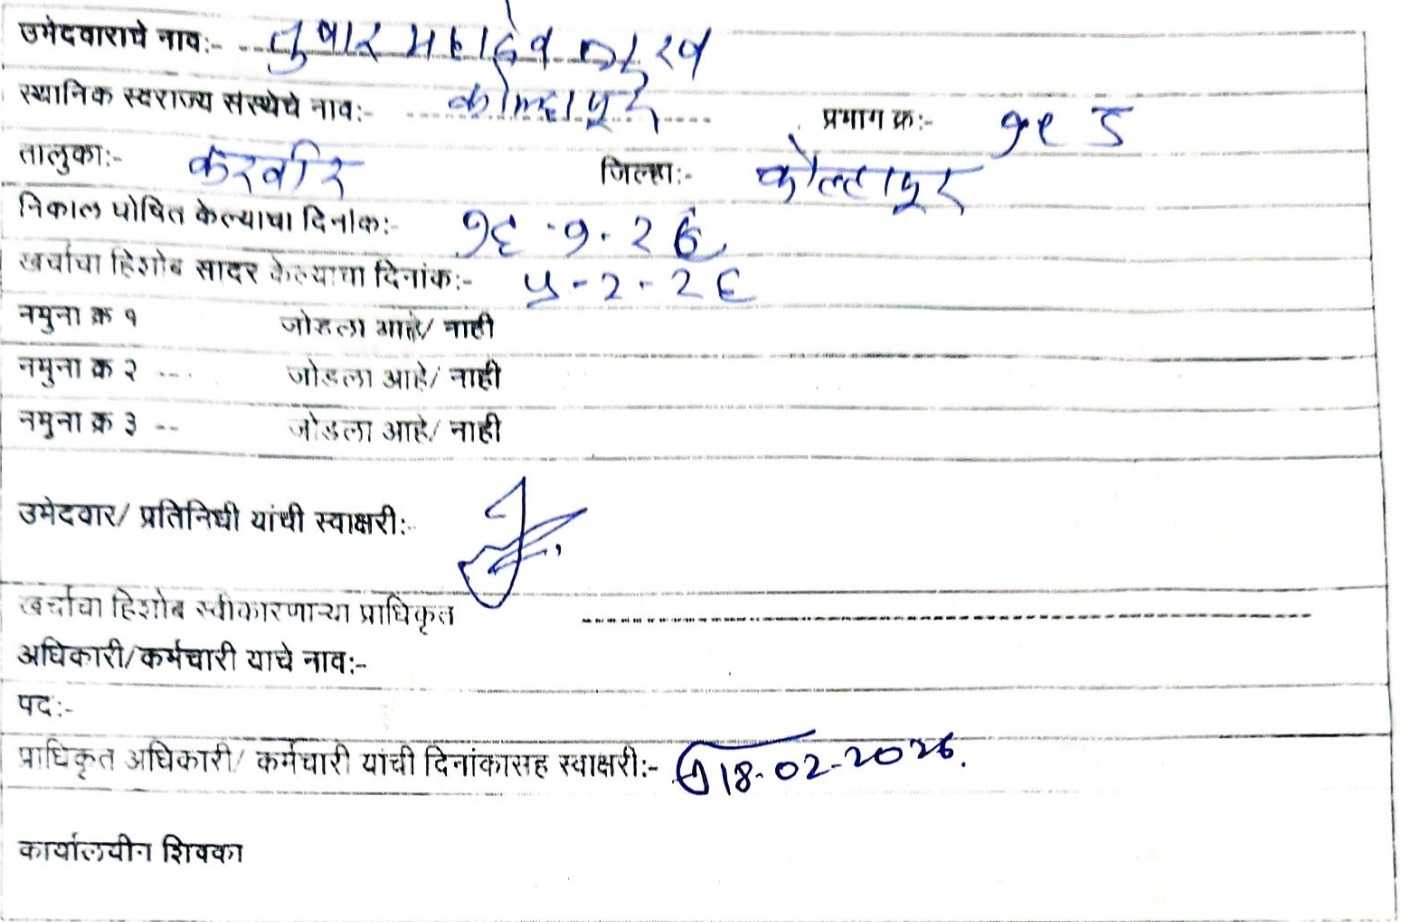 उमेदवाराचे नाव:- तुषार महादेव
स्थानिक स्वराज्य संस्थेचे नाव:- कोल्हापूर प्रभाग क्र:- १९ ड
तालुका:- करवीर जिल्हा:- कोल्हापूर
निकाल घोषित केल्याचा दिनांक:- १६.१.२६
खर्चाचा हिशोब सादर केल्याचा दिनांक:- ५-२-२६
नमुना क्र १ जोडला आहे/ नाही
नमुना क्र २ ---- जोडला आहे/ नाही
नमुना क्र ३ -- जोडला आहे/ नाही
उमेदवार/ प्रतिनिधी यांची स्वाक्षरी:-
खर्चाचा हिशोब स्वीकारणाऱ्या प्राधिकृत
अधिकारी/कर्मचारी याचे नाव:-
पद:-
प्राधिकृत अधिकारी/ कर्मचारी यांची दिनांकासह स्वाक्षरी:- 18-02-2026.
कार्यालयीन शिक्का